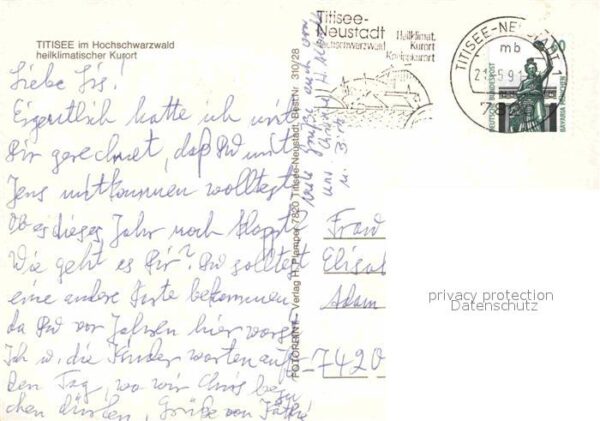 TITISEE im Hochschwarzwald
heilklimatischer Kurort
Liebe Iris!
Eigentlich hatte ich mit
Dir gerechnet, daß Du mit
Jens mitkommen wolltest
Ob es dieses Jahr noch klappt
Wie geht es Dir? Du solltest
eine andere Karte bekommen,
da Du vor Jahren hier warst
Ich u. die Kinder warten auf
den Tag, wo wir Chris be
suchen dürfen, Grüße von Käthi
viele Grüße auch von
uns
u. Birk
FOTORENT – Verlag H. Plamper 7820 Titisee-Neustadt, Best.Nr. 310/28
Titisee-
Neustadt
Hochschwarzwald
Heilklimat.
Kurort
Kneippkurort
TITISEE-NEUSTADT 1
mb
DEUTSCHE BUNDESPOST
BAVARIA MÜNCHEN
Frau
Elisa
Adam
7420
privacy protection
Datenschutz